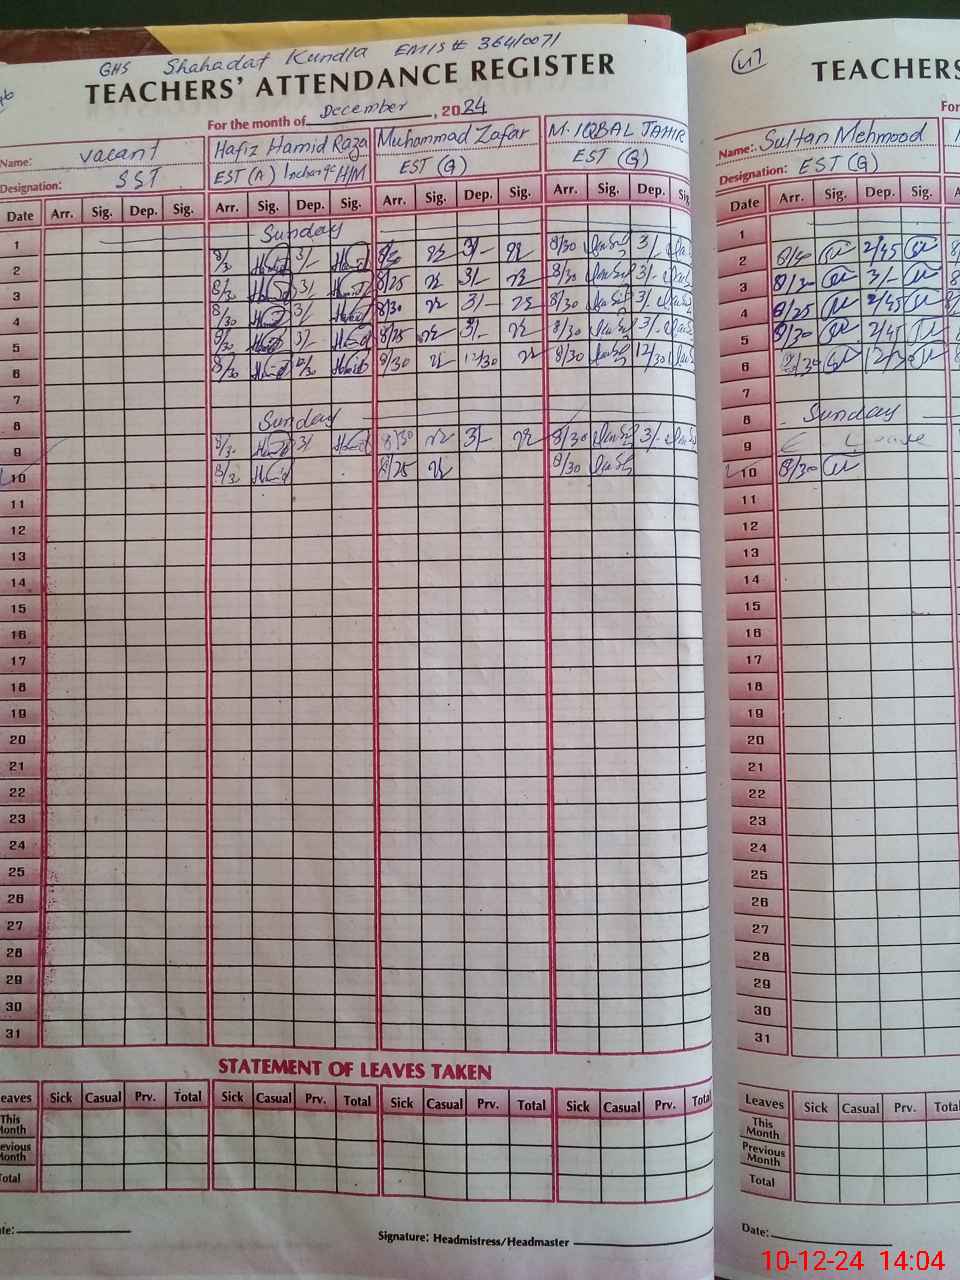 GHS Shahadat Kundla EMIS # 36410071
TEACHERS' ATTENDANCE REGISTER
For the month of December, 2024
Name: Vacant Hafiz Hamid Raza Muhammad Zafar M. IQBAL TAHIR
Designation: SST EST (A) Incharge H/M EST (G) EST (G)
Date Arr. Sig. Dep. Sig. Arr. Sig. Dep. Sig. Arr. Sig. Dep. Sig. Arr. Sig. Dep. Sig
1 Sunday
2 8/30 Hamid 3/- Hamid 3/- 8/30 3/-
3 8/30 Hamid 3/- Hamid 8/25 3/- 8/30 3/-
4 8/30 Hamid 3/- Hamid 8/30 3/- 8/30 3/-
5 8/30 Hamid 3/- Hamid 8/25 3/- 8/30 3/-
6 8/30 Hamid 12/30 Hamid 8/30 12/30 8/30 12/30
7
8 Sunday
9 8/30 Hamid 3/- Hamid 8/30 3/- 8/30 3/-
10 8/30 Hamid 8/25 8/30
11
12
13
14
15
16
17
18
19
20
21
22
23
24
25
26
27
28
29
30
31
STATEMENT OF LEAVES TAKEN
eaves Sick Casual Prv. Total Sick Casual Prv. Total Sick Casual Prv. Total Sick Casual Prv. Total
This Month
evious Month
otal
te:
Signature: Headmistress/Headmaster
TEACHERS
For
Name: Sultan Mehmood
Designation: EST (G)
Date Arr. Sig. Dep. Sig.
1
2 2/45
3 8/30 3/-
4 8/25 2/45
5 8/30 2/45
6 8/30 12/30
7
8 Sunday
9 Leave
10 8/30
11
12
13
14
15
16
17
18
19
20
21
22
23
24
25
26
27
28
29
30
31
Leaves Sick Casual Prv. Total
This Month
Previous Month
Total
Date:
10-12-24 14:04